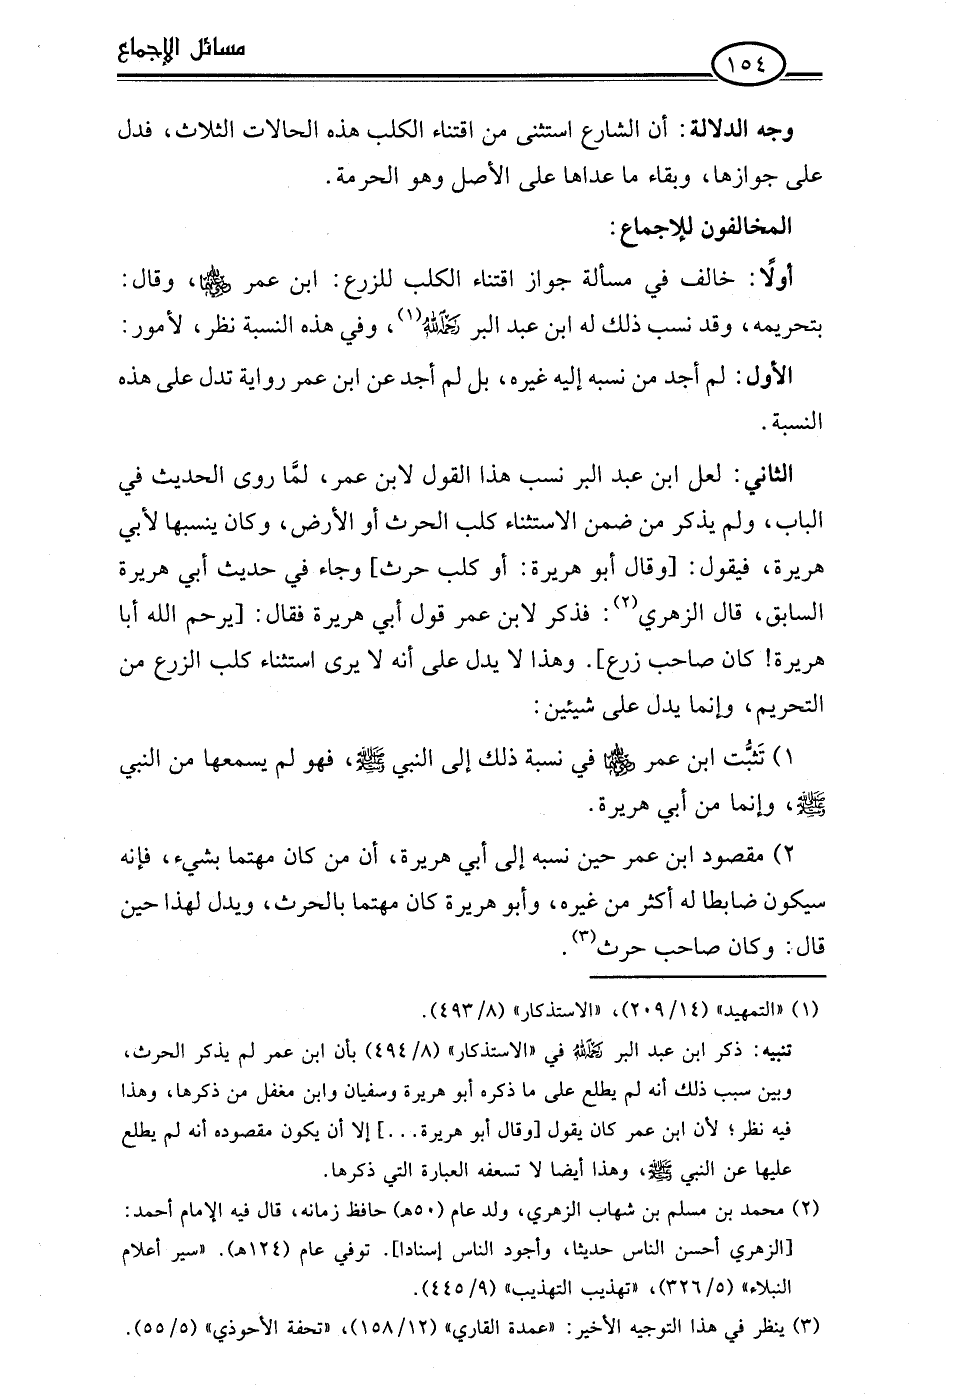 مسائل الإجماع
١٥٤
وجه الدلالة: أن الشارع استثنى من اقتناء الكلب هذه الحالات الثلاث، فدل
على جوازها، وبقاء ما عداها على الأصل وهو الحرمة.
المخالفون للإجماع:
أولًا: خالف في مسألة جواز اقتناء الكلب للزرع: ابن عمر رضي الله عنهما، وقال:
بتحريمه، وقد نسب ذلك له ابن عبد البر رحمه الله(١)، وفي هذه النسبة نظر، لأمور:
الأول: لم أجد من نسبه إليه غيره، بل لم أجد عن ابن عمر رواية تدل على هذه
النسبة.
الثاني: لعل ابن عبد البر نسب هذا القول لابن عمر، لمَّا روى الحديث في
الباب، ولم يذكر من ضمن الاستثناء كلب الحرث أو الأرض، وكان ينسبها لأبي
هريرة، فيقول: [وقال أبو هريرة: أو كلب حرث] وجاء في حديث أبي هريرة
السابق، قال الزهري(٢): فذكر لابن عمر قول أبي هريرة فقال: [يرحم الله أبا
هريرة! كان صاحب زرع]. وهذا لا يدل على أنه لا يرى استثناء كلب الزرع من
التحريم، وإنما يدل على شيئين:
١) تَثبُّت ابن عمر رضي الله عنهما في نسبة ذلك إلى النبي ﷺ، فهو لم يسمعها من النبي
ﷺ، وإنما من أبي هريرة.
٢) مقصود ابن عمر حين نسبه إلى أبي هريرة، أن من كان مهتما بشيء، فإنه
سيكون ضابطا له أكثر من غيره، وأبو هريرة كان مهتما بالحرث، ويدل لهذا حين
قال: وكان صاحب حرث(٣).
(١) «التمهيد» (١٤/٢٠٩)، «الاستذكار» (٨/٤٩٣).
تنبيه: ذكر ابن عبد البر رحمه الله في «الاستذكار» (٨/٤٩٤) بأن ابن عمر لم يذكر الحرث،
وبين سبب ذلك أنه لم يطلع على ما ذكره أبو هريرة وسفيان وابن مغفل من ذكرها، وهذا
فيه نظر؛ لأن ابن عمر كان يقول [وقال أبو هريرة...] إلا أن يكون مقصوده أنه لم يطلع
عليها عن النبي ﷺ، وهذا أيضا لا تسعفه العبارة التي ذكرها.
(٢) محمد بن مسلم بن شهاب الزهري، ولد عام (٥٠هـ) حافظ زمانه، قال فيه الإمام أحمد:
[الزهري أحسن الناس حديثا، وأجود الناس إسنادا]. توفي عام (١٢٤هـ). «سير أعلام
النبلاء» (٥/٣٢٦)، «تهذيب التهذيب» (٩/٤٤٥).
(٣) ينظر في هذا التوجيه الأخير: «عمدة القاري» (١٢/١٥٨)، «تحفة الأحوذي» (٥/٥٥).